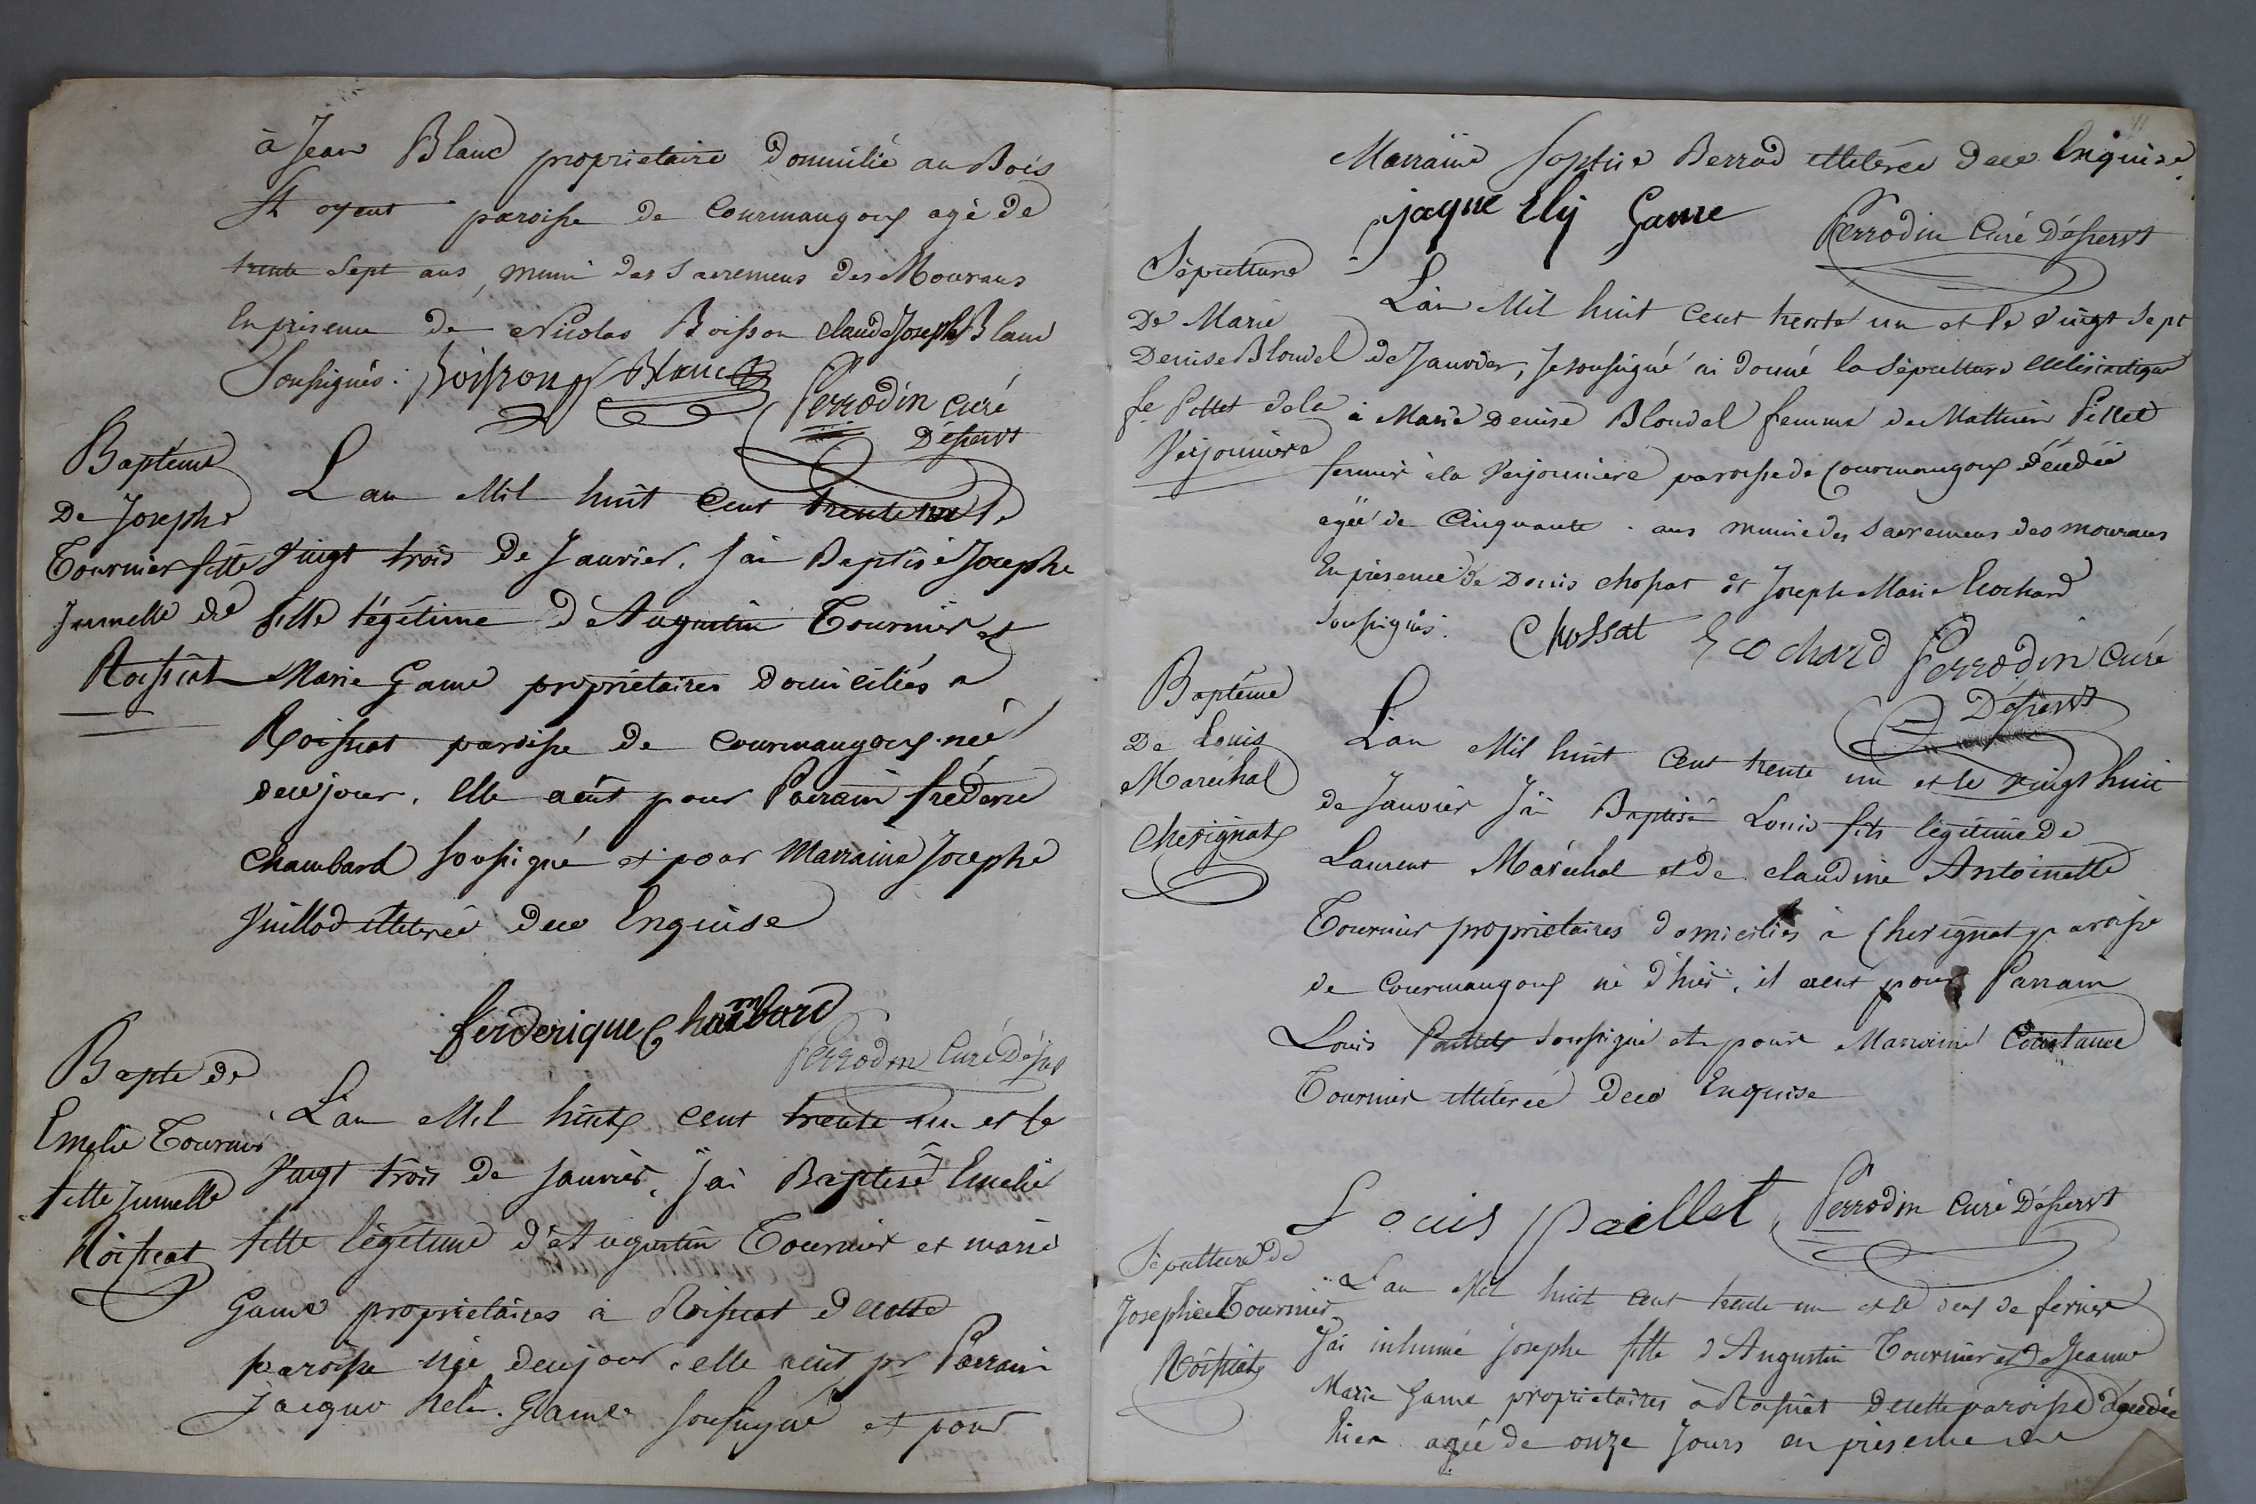 à Jean Blanc proprietaire Domicilié au Bois
St oyent paroisse de Courmangoux agé de
trente Sept ans, muni des Sacremens des Mourans
En présence de Nicolas Boisson claude Joseph Blanc
Soussignés : Boisson Blanc Perrodin curé
Déservt
Baptême
De Josephe
Tournier fille
Jumelle de
Roissiat
L'an Mil huit Cent trente un le
Vingt trois de Janvier, J'ai Baptisé Josephe
fille légitime d'Augustin Tournier et
Marie Game propriétaires Domiciliés a
Roissiat paroisse de Courmangoux née
de ce jour. Elle a eüt pour Parrain fréderic
Chambard soussigné et pour Marraine Josephe
Vuillod illiterée de ce Enquise
ferderique Chambard
Perrodin Curé Déser
Bapte de
Emelie Tournier
fille Jumelle
Roissiat
L'an Mil huit cent trente un et le
Vingt trois de Janvier, j'ai Baptisé Emelie
fille légitime d'Augustin Tournier et marie
Game proprietaires à Roissiat de cette
paroisse née de ce jour. elle a eüt pr Parrain
Jacque Game soussigné et pour
Marraine Sophie Berrod illiterée de ce Enquise.
jaque Ely Game Perrodin Curé Déservt
Sépulture
De Marie
Denise Blondel
fe Pillet de la
Verjonniere
L'an Mil huit Cent trente un et le vingt Sept
de Janvier, Je soussigné ai donné la Sépulture
à Marie Denise Blondel femme de Mathieu Pillet
fermier à la Verjouniere paroisse de Courmangoux décedée
agée de Cinquante ans munie des Sacremens des mourans
En présence de Denis Chossat et Joseph Marie Ecochard
soussignés. Chossat Ecochard Perrodin curé
Déservt
Baptême
De Louis
Maréchal
Chevignat
L'an Mil huit Cent trente un et le vingt huit
de Janvier J'ai Baptisé Louis fils légitime de
Laurent Maréchal et de claudine Antoinette
Tournier proprietaires domiciliés à Chevignat paroisse
de Courmangoux né d'hier, il a eut pour Parrain
Louis Paillet soussigné et pour Marraine Constance
Tournier illiterée de ce Enquise
Louis paillet Perrodin Curé Déservt
Sépulture de
Josephe Tournier
Roissiat
L'an Mil huit cent trente un et le deux de fevrier
J'ai inhumé Josephe fille d'Augustin Tournier et de Jeanne
Marie Game proprietaires à Roissiat de cette paroisse décédée
hier agée de onze Jours en présence de